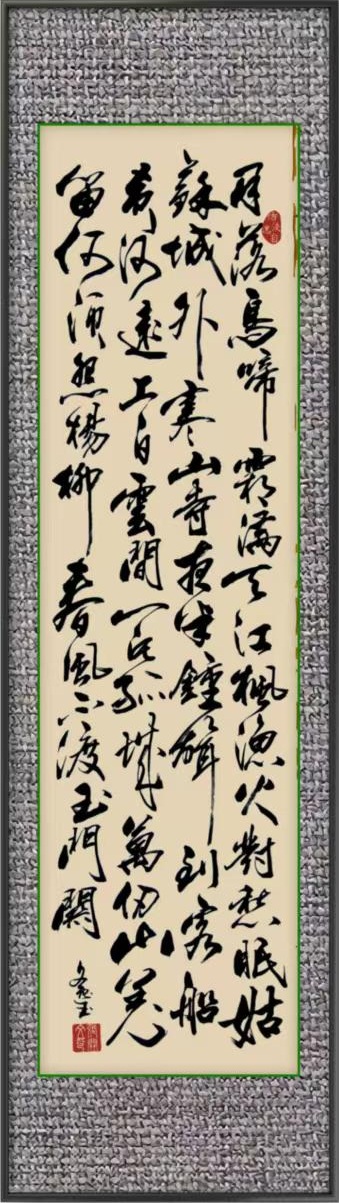 月落烏啼霜滿天江楓漁火對愁眠姑
蘇城外寒山寺夜半鍾聲到客船
黃河遠上白雲間一片孤城萬仞山羌
笛何須怨楊柳春風不渡玉門關